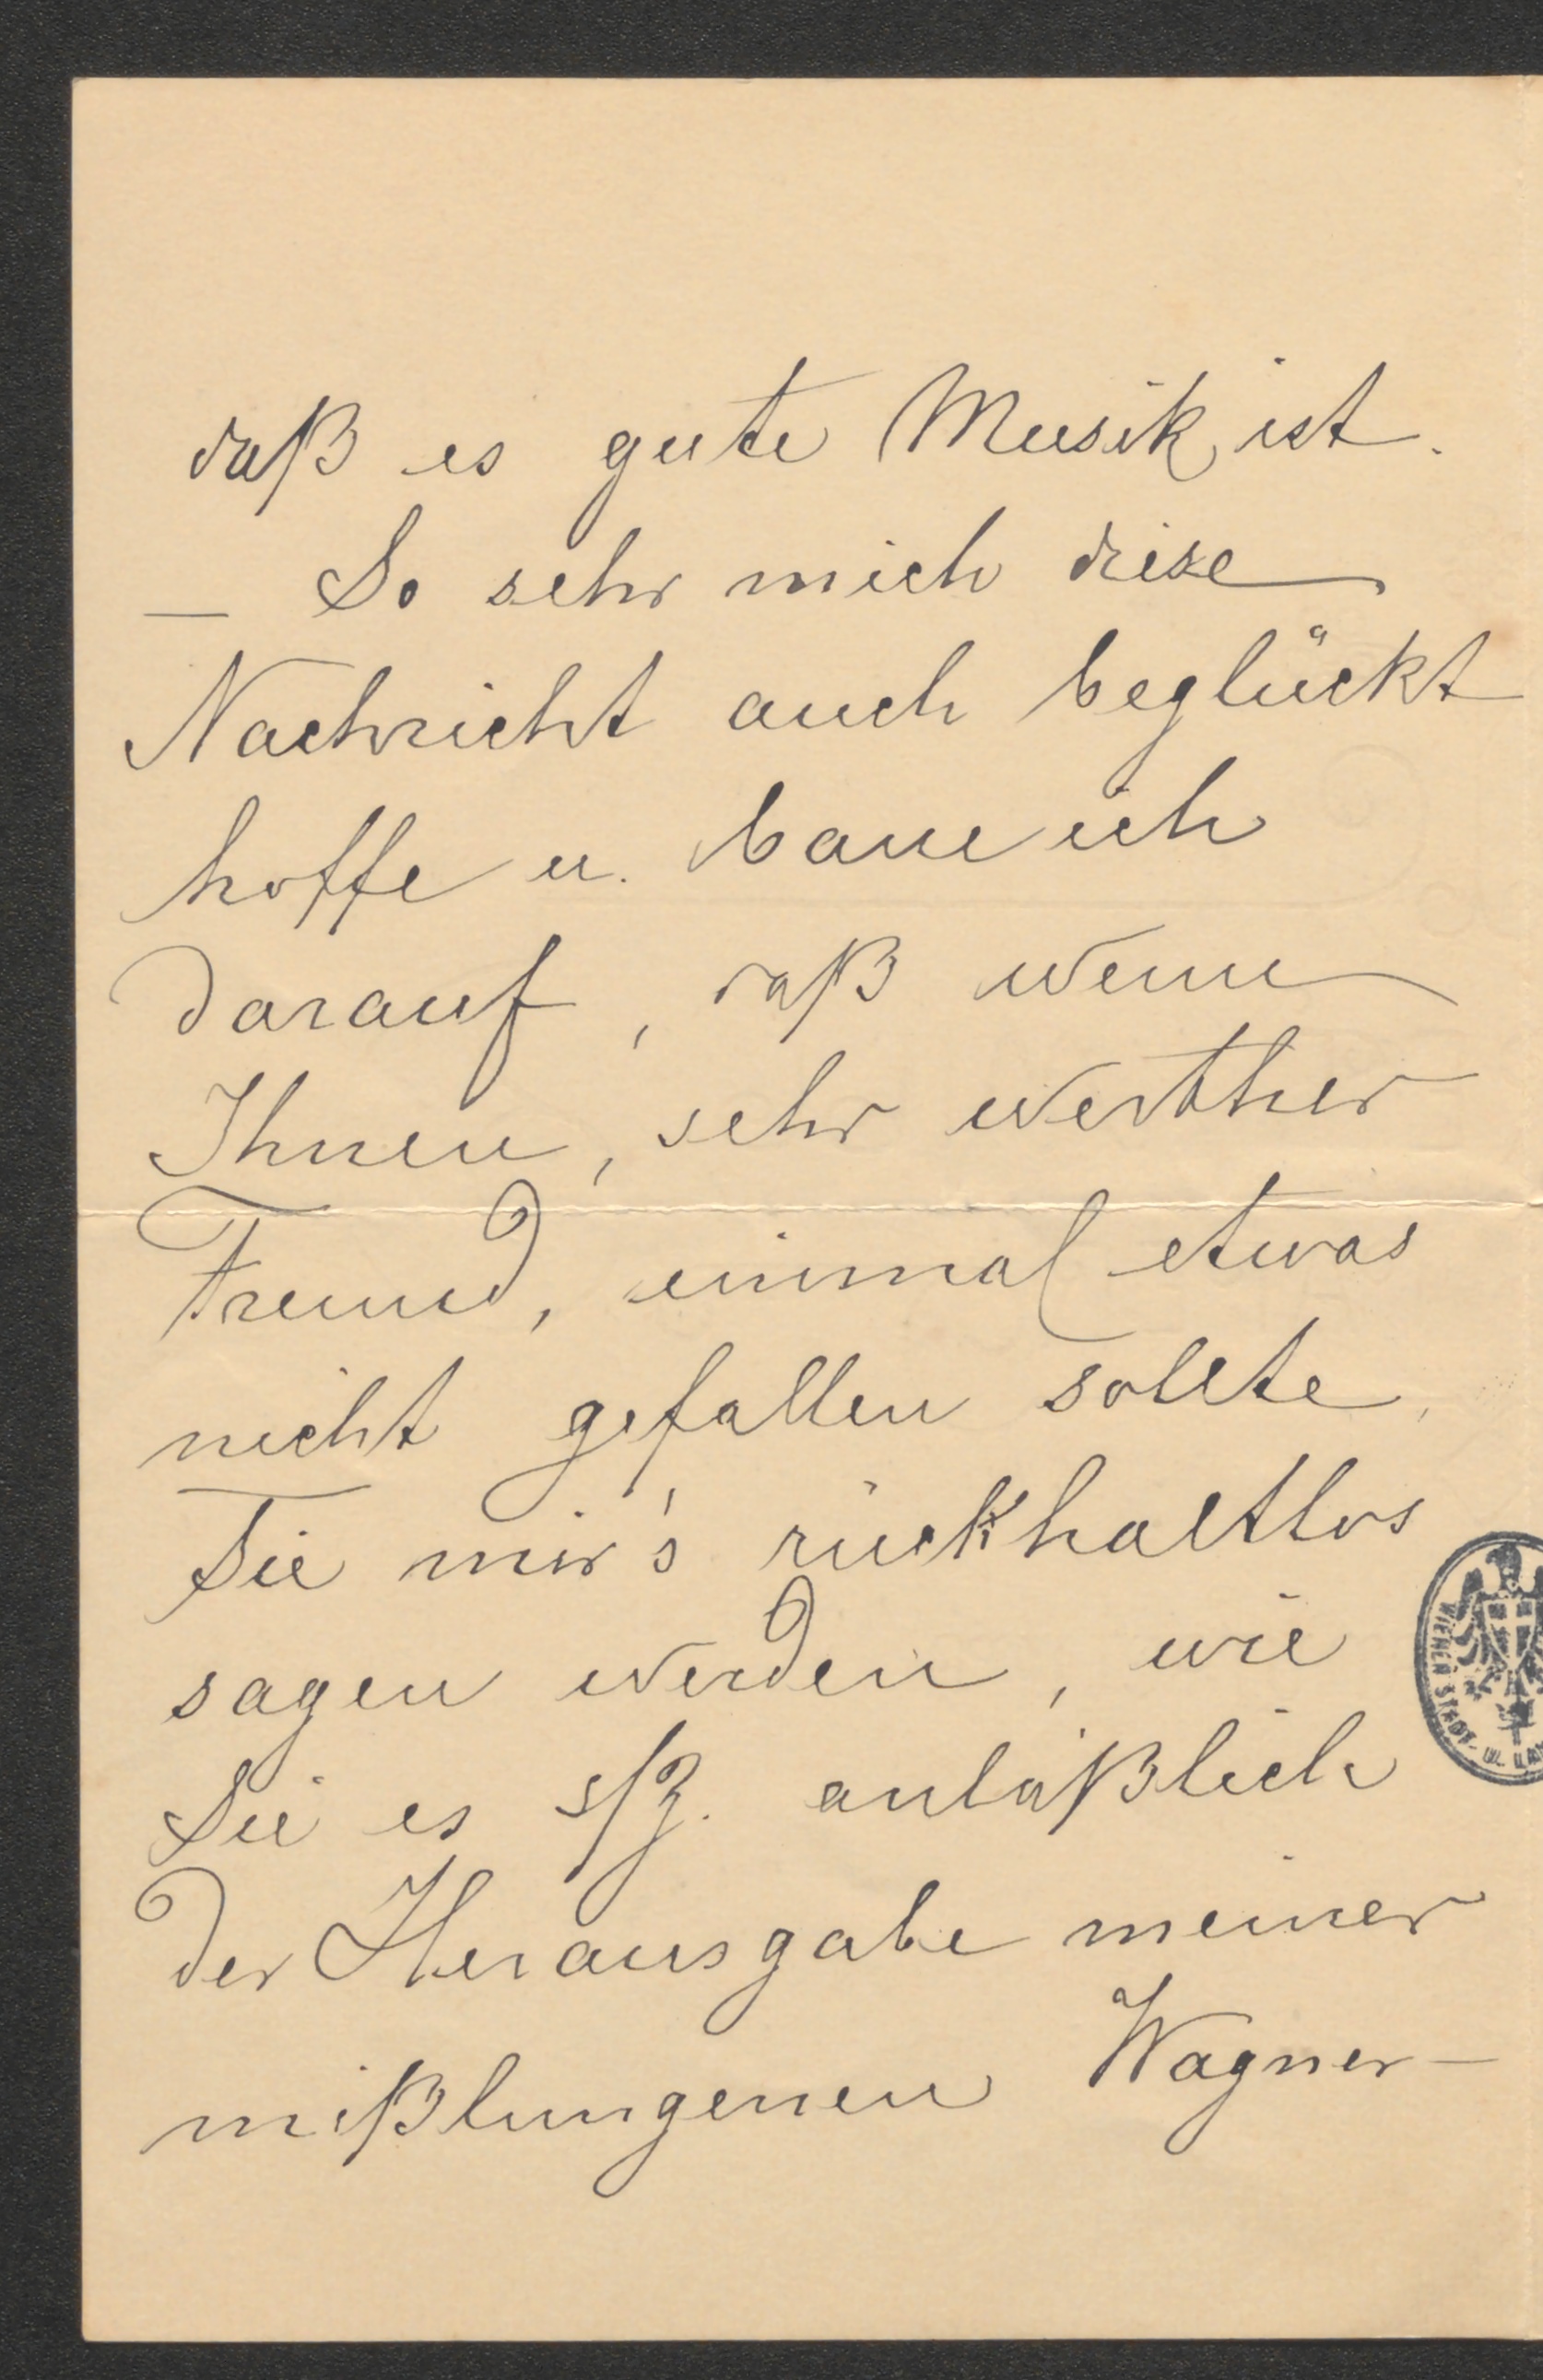 daß es gute Musik ist.
— So sehr mich diese
Nachricht auch beglückt
hoffe u. baue ich
darauf, daß wenn
Ihnen, sehr werther
Freund, einmal etwas
nicht gefallen sollte,
Sie mir's rückhaltlos
sagen werden, wie
Sie es sfz. anläßlich
der Herausgabe meiner
mißlungenen Wagner-
WIENER STADT- U.